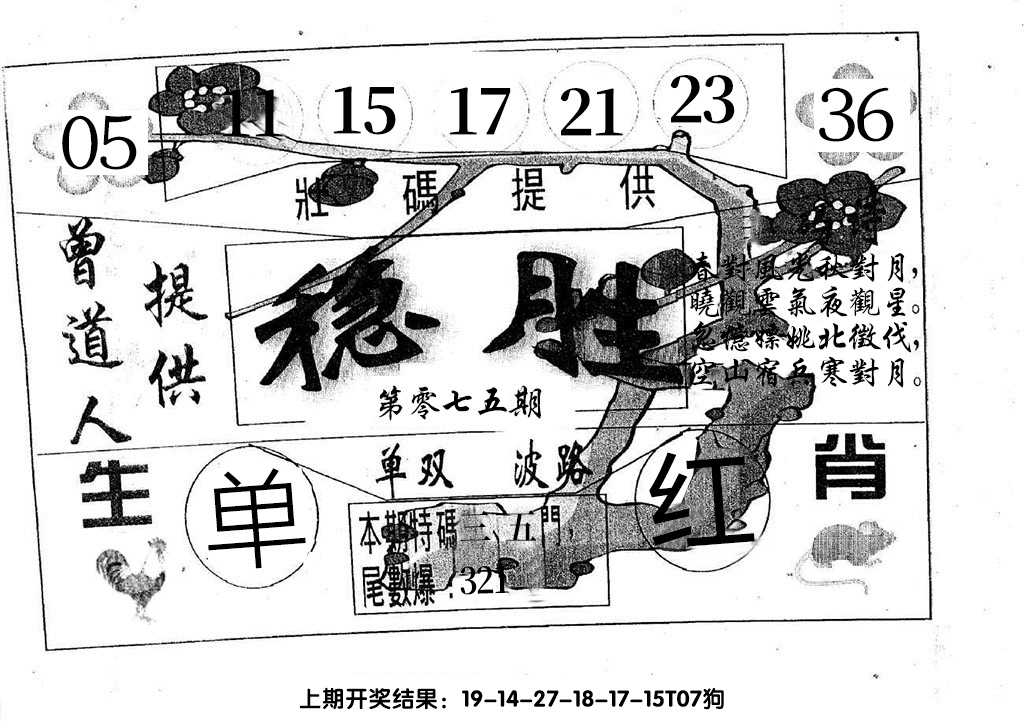 05 11 15 17 21 23 36
壯碼提供
曾道人
提供
稳胜
第零七五期
春對風光秋對月，
曉觀雲氣夜觀星。
忽憶嫖姚北徵伐，
空山宿兵寒對月。
单双 波路
生肖
单
红
本期特碼三、五門，
尾數爆：321
上期开奖结果：19-14-27-18-17-15T07狗